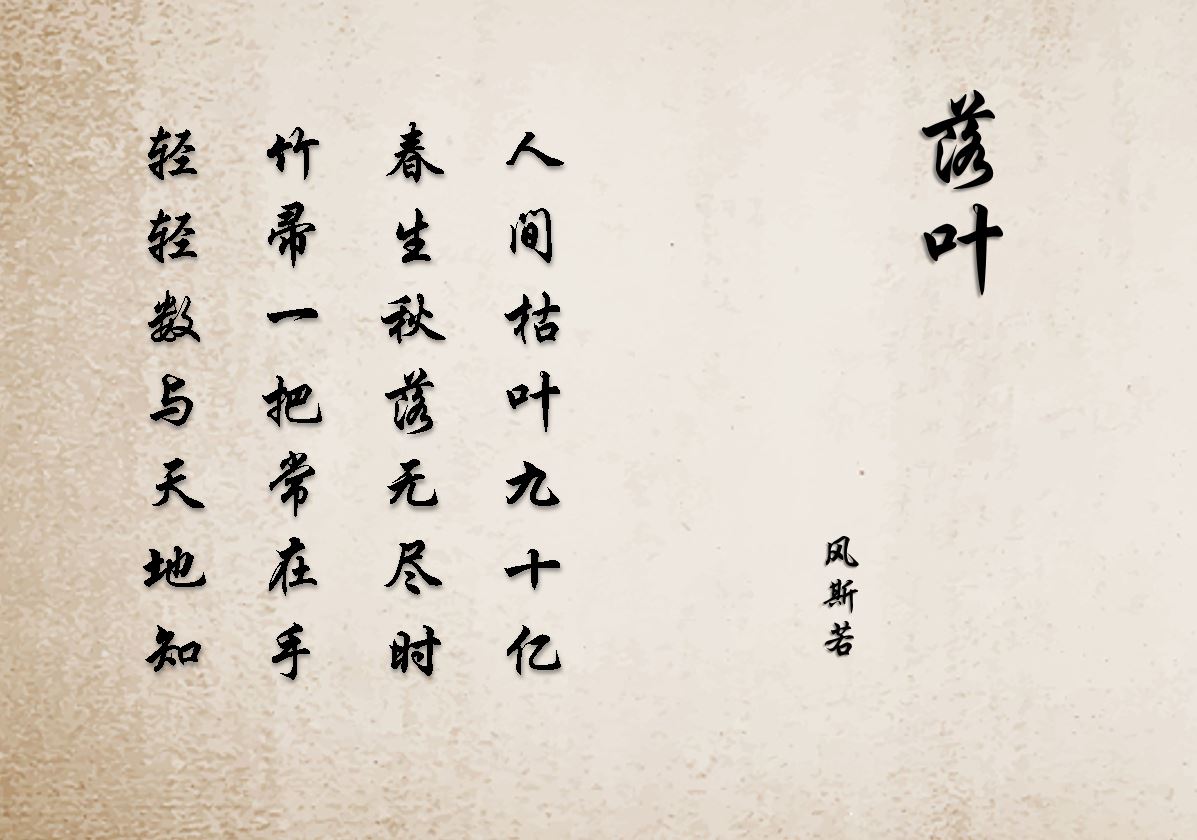 落叶
风斯若
人间枯叶九十亿
春生秋落无尽时
竹帚一把常在手
轻轻数与天地知